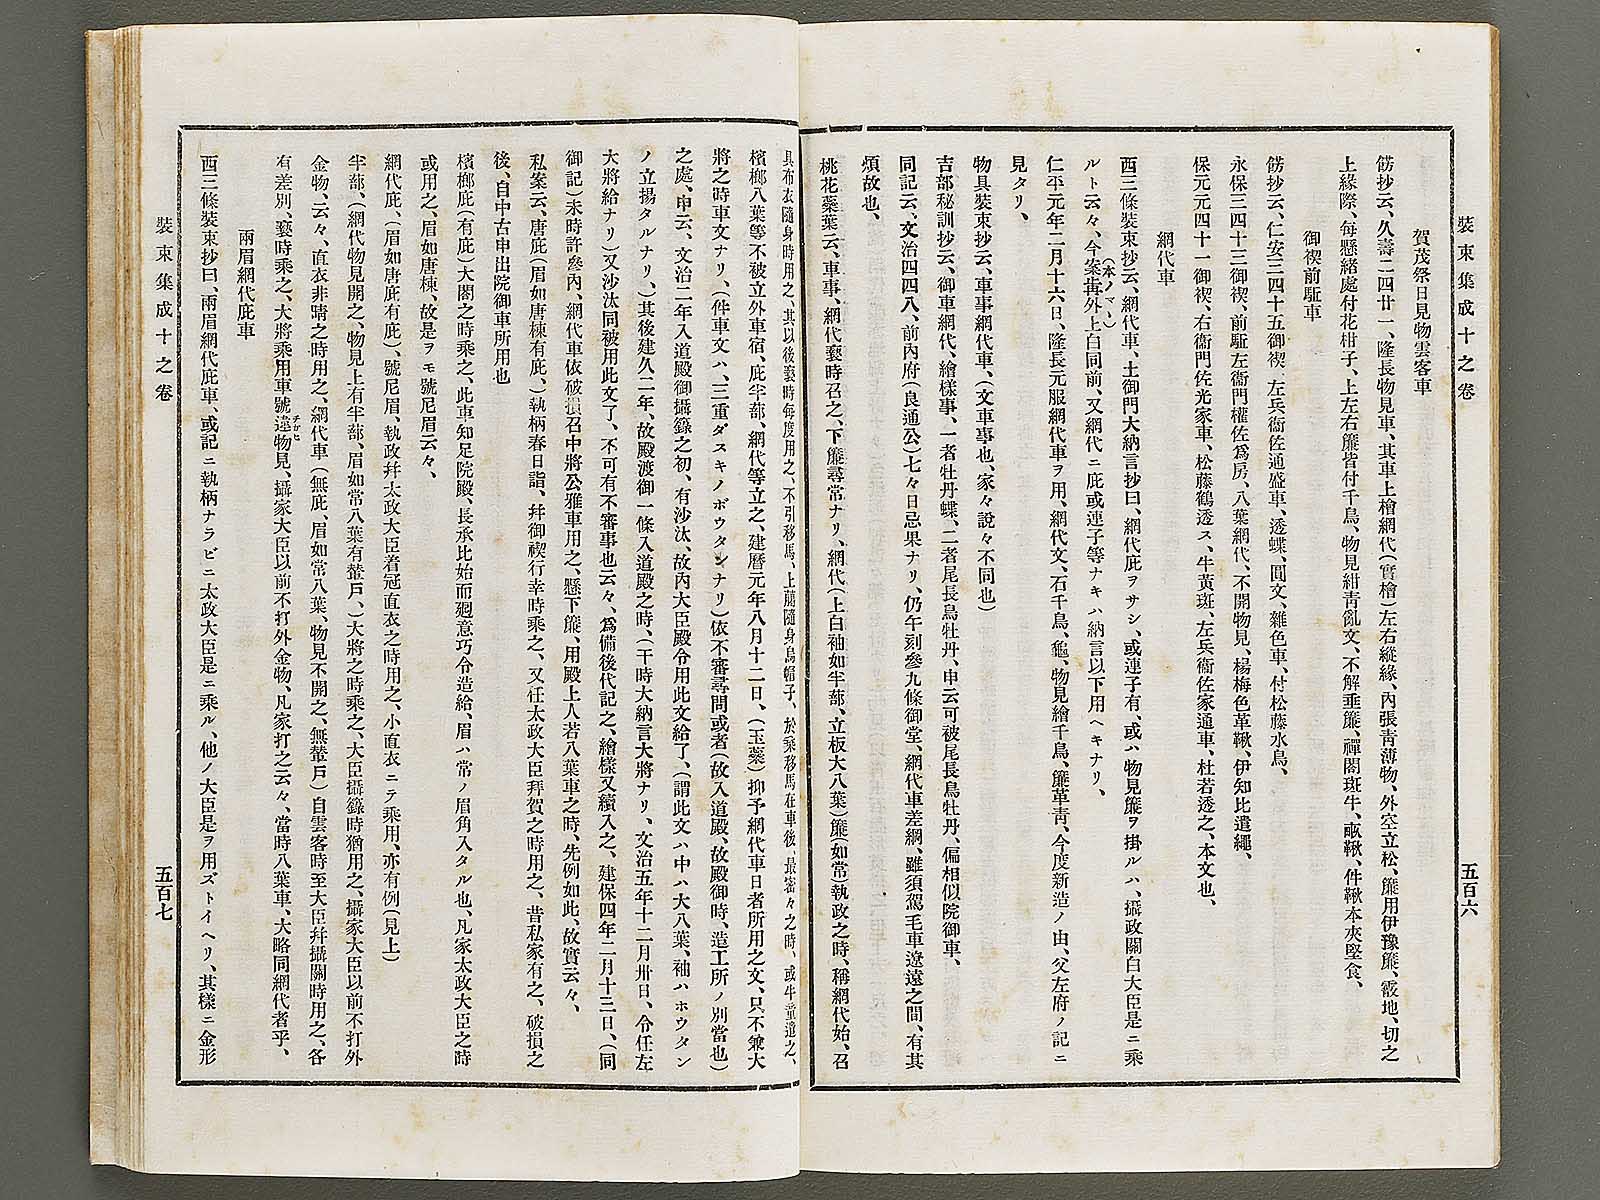 裝束集成十之卷
五百六
賀茂祭日見物雲客車
餝抄云、久壽二四廿一、隆長物見車、其車上檜網代(實檜)左右縱緣、內張靑薄物、外空立松、簾用伊豫簾、霰地、切之
上緣際、每懸緒處付花柑子、上左右簾皆付千鳥、物見紺靑亂文、不解垂簾、禪閤斑牛、䩛鞦、件鞦本夾堅食、
御禊前駈車
餝抄云、仁安三四十五御禊、左兵衞佐通盛車、透蝶、圓文、雜色車、付松藤水鳥、
永保三四十三御禊、前駈左衞門權佐爲房、八葉網代、不開物見、楊梅色革鞦、伊知比遣繩、
保元元四十一御禊、右衞門佐光家車、松藤鶴透ス、牛黃斑、左兵衞佐家通車、杜若透之、本文也、
網代車
西三條裝束抄云、網代車、土御門大納言抄曰、網代庇ヲサシ、或連子有、或ハ物見簾ヲ掛ルハ、攝政關白大臣是ニ乘
ルト云々、今案冓外上白同前、又網代ニ庇或連子等ナキハ納言以下用ヘキナリ、
(本ノマヽ)
仁平元年二月十六日、隆長元服網代車ヲ用、網代文、石千鳥、龜、物見繪千鳥、簾革靑、今度新造ノ由、父左府ノ記ニ
見タリ、
物具裝束抄云、車事網代車、(文車事也、家々說々不同也)
吉部秘訓抄云、御車網代、繪樣事、一者牡丹蝶、二者尾長鳥牡丹、申云可被尾長鳥牡丹、偏相似院御車、
同記云、文治四四八、前內府(良通公)七々日忌果ナリ、仍午刻參九條御堂、網代車差網、雖須駕毛車遼遠之間、有其
煩故也、
桃花蘂葉云、車事、網代褻時召之、下簾尋常ナリ、網代(上白袖如半蔀、立板大八葉)簾(如常)執政之時、稱網代始、召
具布衣隨身時用之、其以後褻時每度用之、不引移馬、上﨟隨身烏帽子、於乘移馬在車後、最密々之時、或牛童遣之、
檳榔八葉等不被立外車宿、庇半蔀、網代等立之、建曆元年八月十二日、(玉蘂)抑予網代車日者所用之文、只不兼大
將之時車文ナリ、(件車文ハ、三重ダスキノボウタンナリ)依不審尋問或者(故入道殿、故殿御時、造工所ノ別當也)
之處、申云、文治二年入道殿御攝籙之初、有沙汰、故內大臣殿令用此文給了、(謂此文ハ中ハ大八葉、袖ハホウタン
ノ立揚タルナリ、)其後建久二年、故殿渡御一條入道殿之時、(干時大納言大將ナリ、文治五年十二月卅日、令任左
大將給ナリ、)又沙汰同被用此文了、不可有不審事也云々、爲備後代記之、繪樣又續入之、建保四年二月十三日、(同
御記)未時許參內、網代車依破損召中將公雅車用之、懸下簾、用殿上人若八葉車之時、先例如此、故實云々、
私案云、唐庇(眉如唐棟有庇、)執柄春日詣、幷御禊行幸時乘之、又任太政大臣拜賀之時用之、昔私家有之、破損之
後、自中古申出院御車所用也
檳榔庇(有庇)大閤之時乘之、此車知足院殿、長承比始而廻意巧令造給、眉ハ常ノ眉角入タル也、凡家太政大臣之時
或用之、眉如唐棟、故是ヲモ號尼眉云々、
網代庇、(眉如唐庇有庇)、號尼眉、執政幷太政大臣着冠直衣之時用之、小直衣ニテ乘用、亦有例(見上)
半蔀、(網代物見開之、物見上有半蔀、眉如常八葉有輦戶、)大將之時乘之、大臣攝籙時猶用之、攝家大臣以前不打外
金物、云々、直衣非晴之時用之、網代車(無庇、眉如常八葉、物見不開之、無輦戶)自雲客時至大臣幷攝關時用之、各
有差別、褻時乘之、大將乘用車號違物見、攝家大臣以前不打外金物、凡家打之云々、當時八葉車、大略同網代者乎、
チガヒ
兩眉網代庇車
西三條裝束抄曰、兩眉網代庇車、或記ニ執柄ナラビニ太政大臣是ニ乘ル、他ノ大臣是ヲ用ズトイヘリ、其樣ニ金形
裝束集成十之卷
五百七